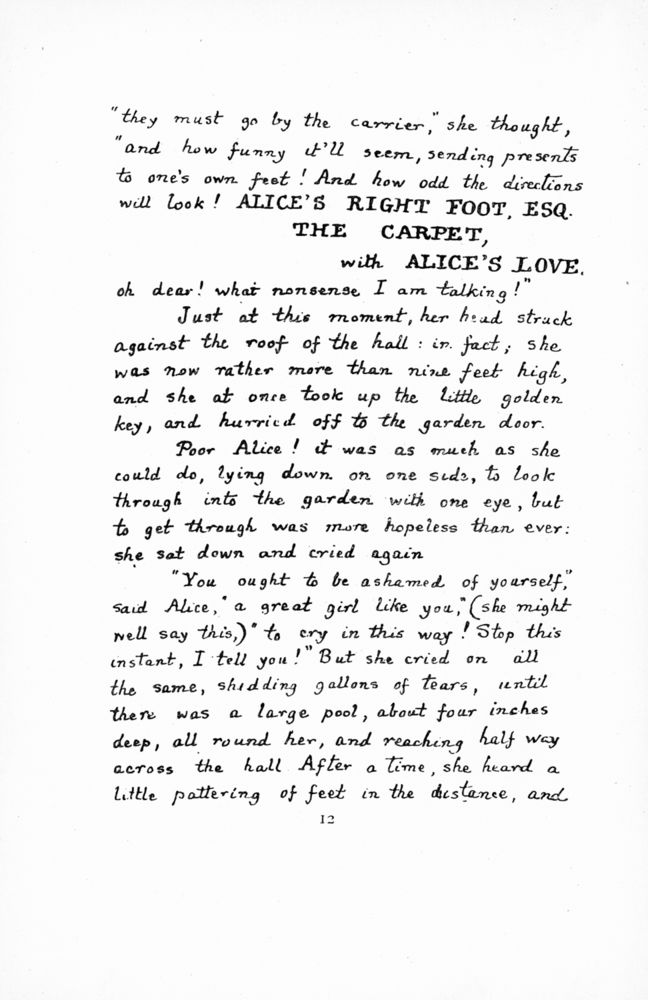 "they must go by the carrier," she thought,
"and how funny it'll seem, sending presents
to one's own feet! And how odd the directions
will look! ALICE'S RIGHT FOOT, ESQ.
THE CARPET,
with ALICE'S LOVE.
oh dear! what nonsense I am talking!"
Just at this moment, her head struck
against the roof of the hall: in fact, she
was now rather more than nine feet high,
and she at once took up the little golden
key, and hurried off to the garden door.
Poor Alice! it was as much as she
could do, lying down on one side, to look
through into the garden with one eye, but
to get through was more hopeless than ever:
she sat down and cried again
"You ought to be ashamed of yourself,"
said Alice, "a great girl like you," (she might
well say this,) "to cry in this way! Stop this
instant, I tell you!" But she cried on all
the same, shedding gallons of tears, until
there was a large pool, about four inches
deep, all round her, and reaching half way
across the hall After a time, she heard a
little pattering of feet in the distance, and
12